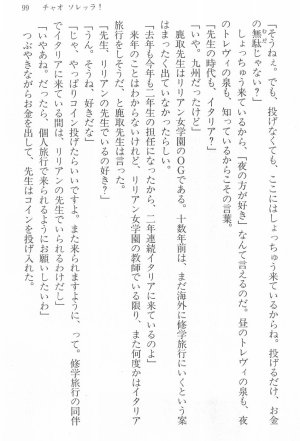 99　チャオ ソレッラ！
「そうねぇ。でも、投げなくても、ここにはしょっちゅう来ているからね。投げるだけ、お金
の無駄じゃない？」
しょっちゅう来ているから、「夜の方が好き」なんて言えるのだ。昼のトレヴィの泉も、夜
のトレヴィの泉も、知っているからこその言葉。
「先生の時代も、イタリア？」
「いや、九州だったけど」
鹿取先生はリリアン女学園のＯＧである。十数年前は、まだ海外に修学旅行にいくという案
はまったく出ていなかったらしい。
「去年も今年も二年生の担任になったから、二年連続イタリアに来ているのよ」
来年のことはわからないけれど、リリアン女学園の教師でいる限り、また何度かはイタリア
旅行をしそうだ、と鹿取先生は言った。
「先生、リリアンの先生でいるの好き？」
「うん。そうね、好きだな」
「じゃ、やっぱりコイン投げたらいいですよ。また来られますように、って。修学旅行の同伴
でイタリアに来ている間は、リリアンの先生でいられるわけだし」
「いやあね。だったら、個人旅行で来られるようにお願いしたいわ」
つぶやきながらお金を出して、先生はコインを投げ入れた。